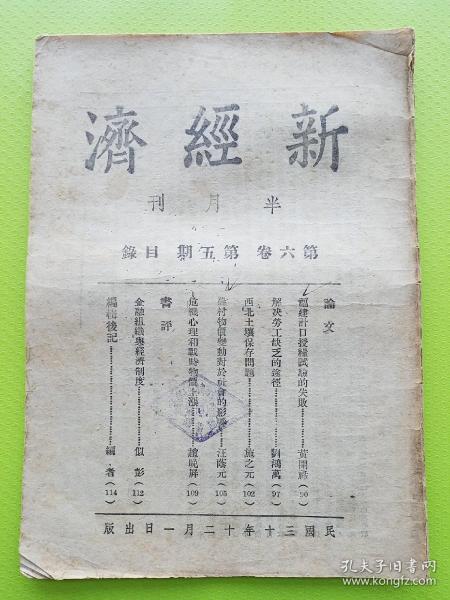 新經濟
半月刊
第六卷 第五期 目錄
論文
福建計口授糧試驗的失敗 黃開祿 (90)
解決勞工缺乏的途徑 劉鴻萬 (97)
西北土壤保存問題 施之元 (102)
農村物價變動對於社會的影響 汪蔭元 (105)
危機心理和戰時物價上漲 趙晚屏 (109)
書評
金融組織與經濟制度 似彭 (112)
編輯後記 編者 (114)
民國三十年十二月一日出版
孔夫子旧书网
https://www.kongfz.com/